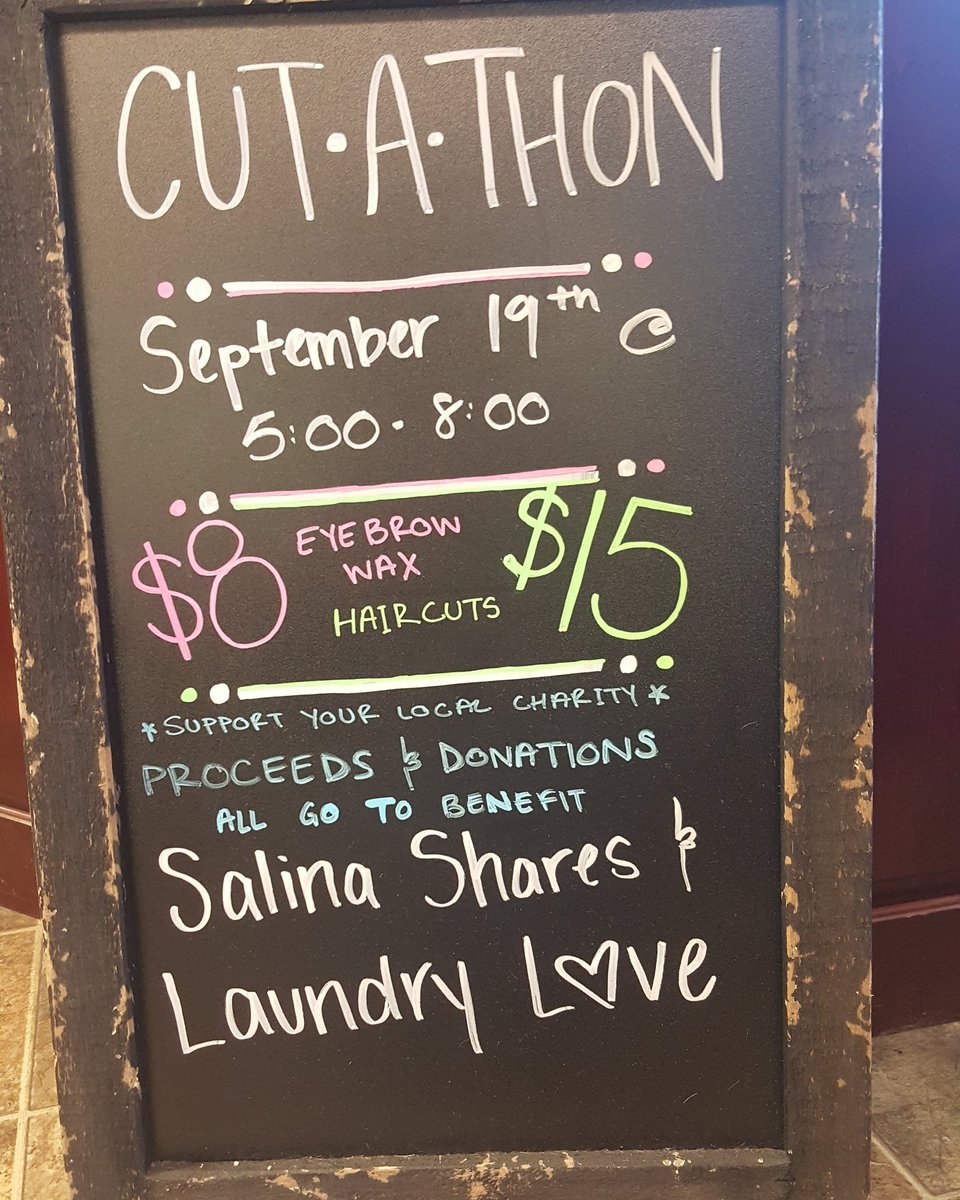 CUT·A·THON
September 19th @
5:00 - 8:00
$8 EYEBROW WAX
HAIRCUTS $15
*SUPPORT YOUR LOCAL CHARITY*
PROCEEDS & DONATIONS
ALL GO TO BENEFIT
Salina Shares &
Laundry L♡ve